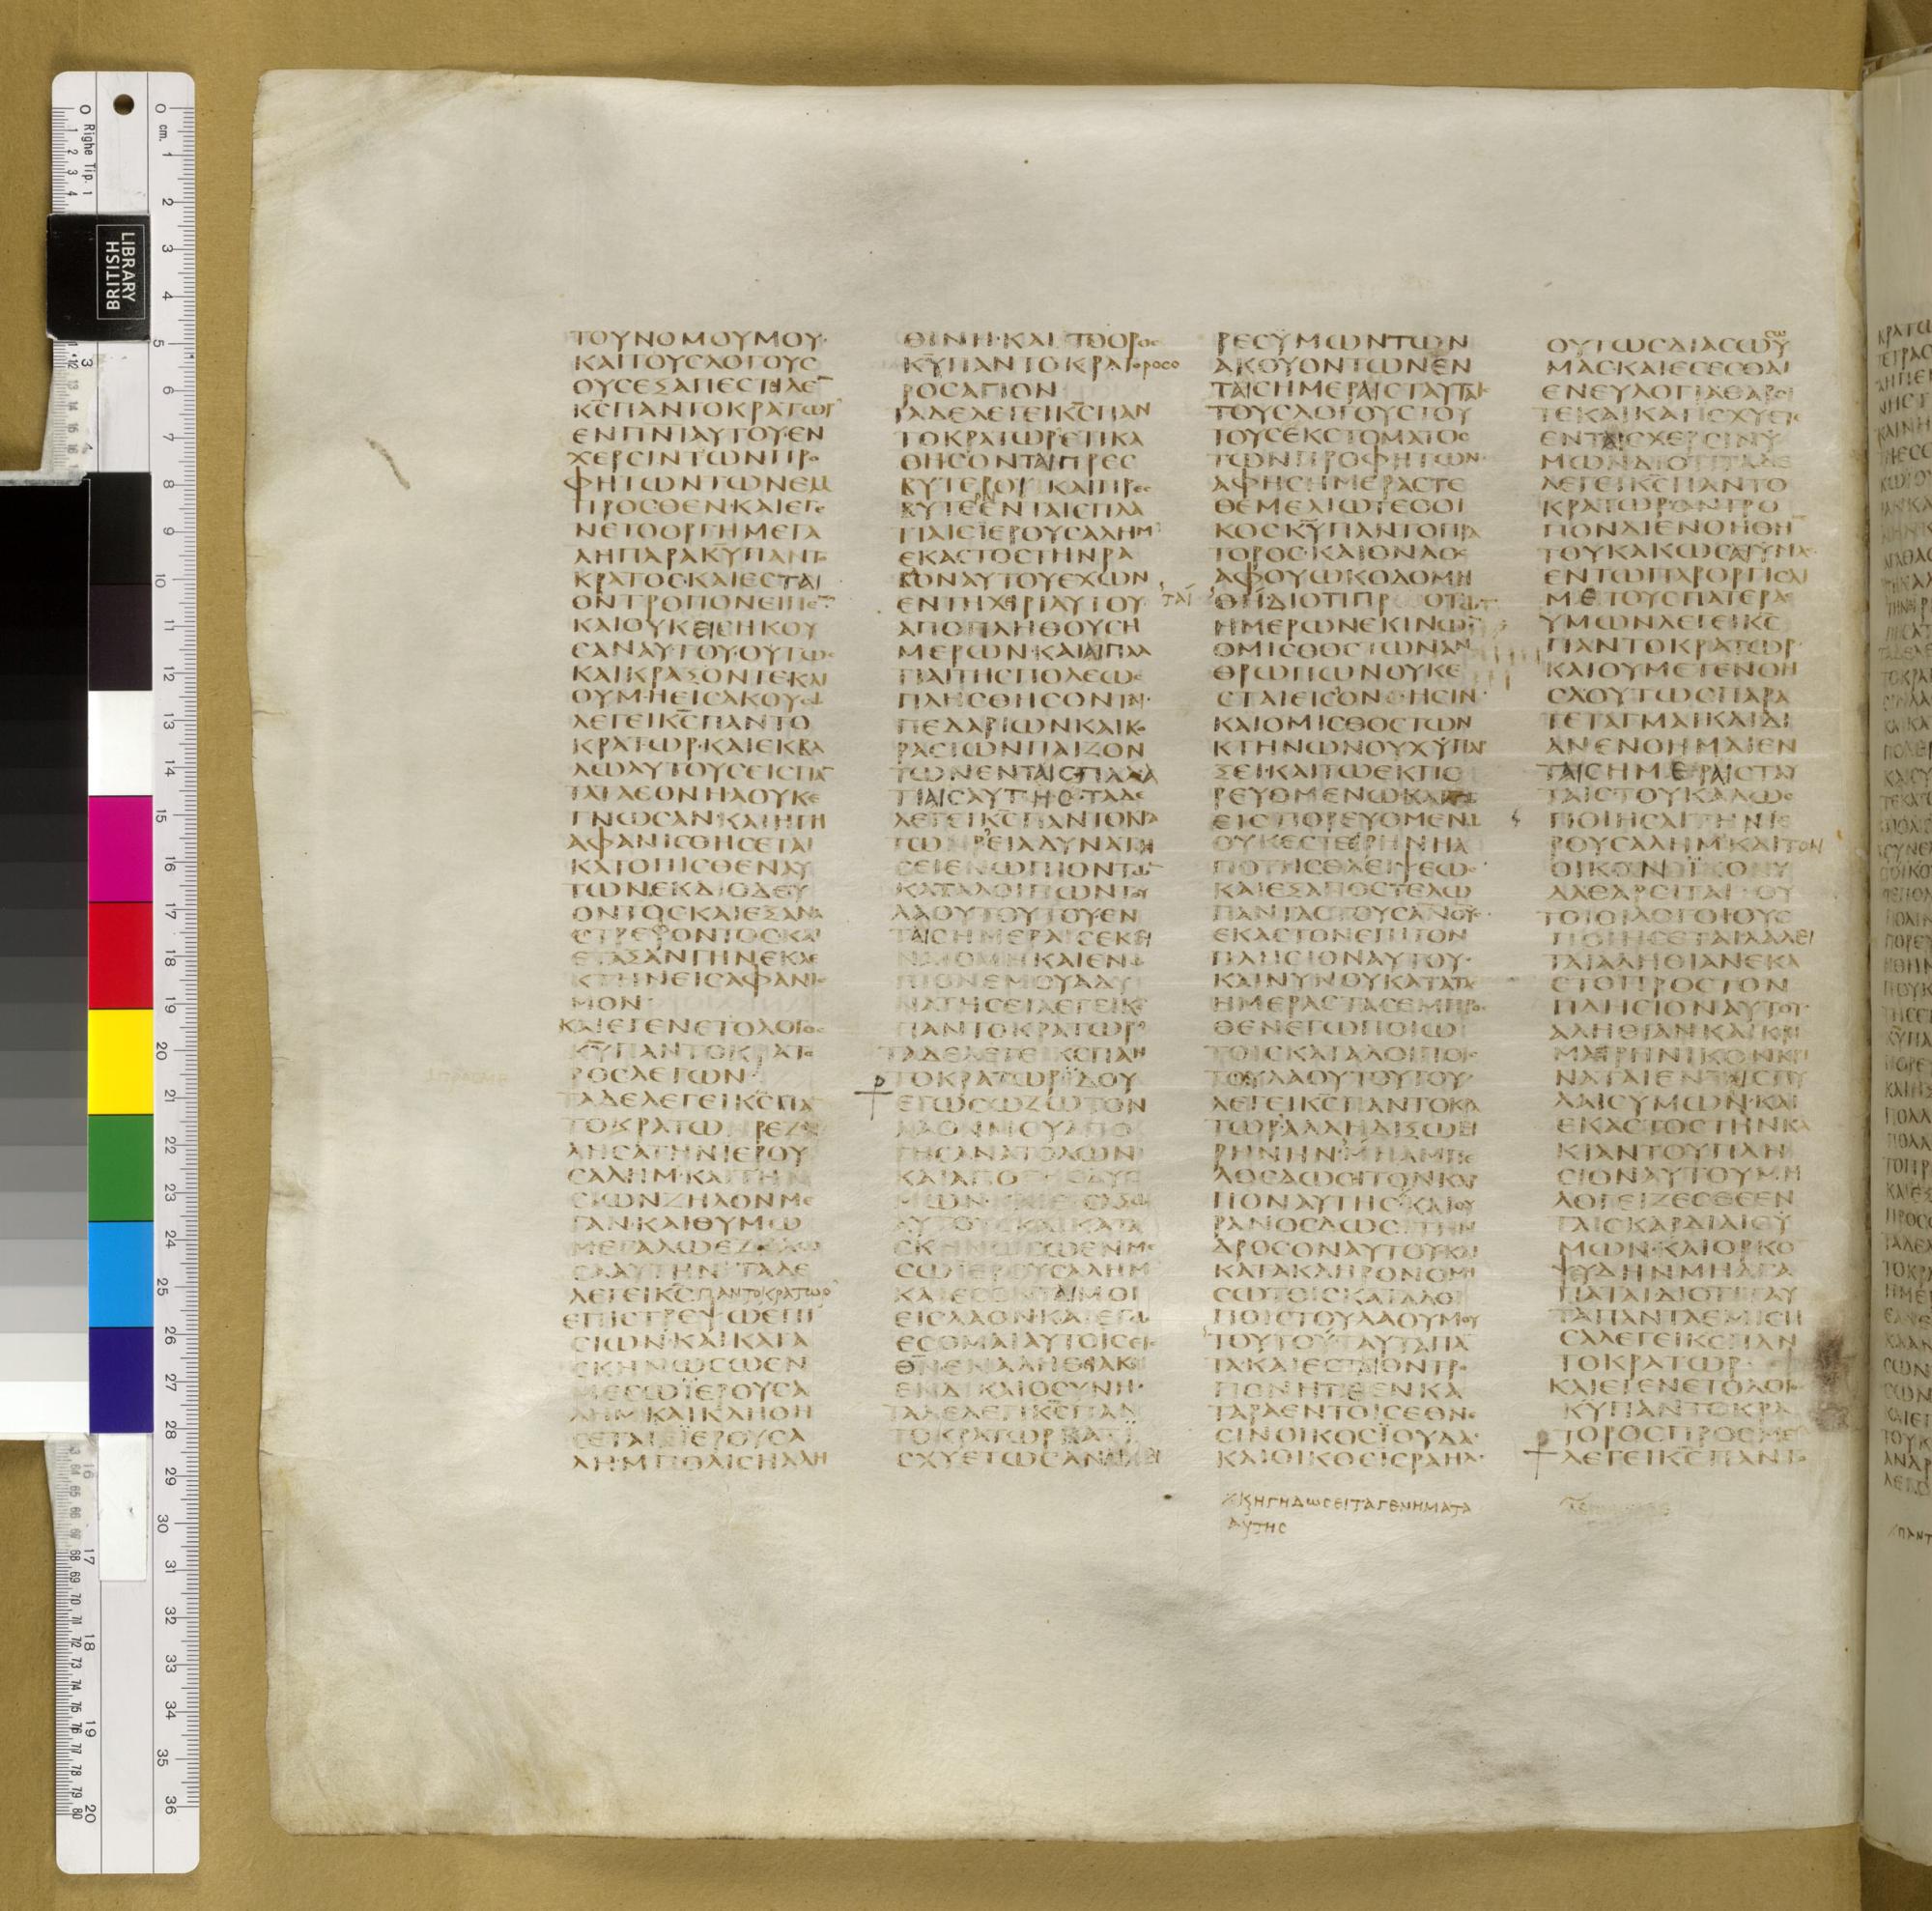 ΤΟΥΝΟΜΟΥΜΟΥ·
ΚΑΙΤΟΥϹΛΟΓΟΥϹ
ΟΥϹΕΞΑΠΕϹΤΙΛΕ̅
Κ̅Ϲ̅ΠΑΝΤΟΚΡΑΤΩΡ
ΕΝΠ̅Ν̅Ι̅ΑΥΤΟΥΕΝ
ΧΕΡϹΙΝΤΩΝΠΡΟ
ΦΗΤΩΝΤΩΝΕΜ
ΠΡΟϹΘΕΝ·ΚΑΙΕΓΕ
ΝΕΤΟΟΡΓΗΜΕΓΑ
ΛΗΠΑΡΑΚ̅Υ̅ΠΑΝΤΟ
ΚΡΑΤΟϹ·ΚΑΙΕϹΤΑΙ
ΟΝΤΡΟΠΟΝΕΙΠΕ̅
ΚΑΙΟΥΚΕΙϹΗΚΟΥ
ϹΑΝΑΥΤΟΥ·ΟΥΤΩϹ
ΚΑΙΚΡΑΞΟΝΤΕΚΑΙ
ΟΥΜΗΕΙϹΑΚΟΥϹΩ
ΛΕΓΕΙΚ̅Ϲ̅ΠΑΝΤΟ
ΚΡΑΤΩΡ·ΚΑΙΕΚΒΑ
ΛΩΑΥΤΟΥϹΕΙϹΠΑ̅
ΤΑΤΑΕΘΝΗΑΟΥΚΕ
ΓΝΩϹΑΝ·ΚΑΙΗΓΗ
ΑΦΑΝΙϹΘΗϹΕΤΑΙ
ΚΑΤΟΠΙϹΘΕΝΑΥ
ΤΩΝΕΚΔΙΟΔΕΥ
ΟΝΤΟϹΚΑΙΕΞΑΝΑ
ϹΤΡΕΦΟΝΤΟϹΚΑΙ
ΕΤΑΞΑΝΓΗΝΕΚΛΕ
ΚΤΗΝΕΙϹΑΦΑΝΙϹ
ΜΟΝ
ΚΑΙΕΓΕΝΕΤΟΛΟΓΟϹ
Κ̅Υ̅ΠΑΝΤΟΚΡΑΤΟ
ΡΟϹΛΕΓΩΝ
ΤΑΔΕΛΕΓΕΙΚ̅Ϲ̅ΠΑ̅
ΤΟΚΡΑΤΩΡΕΖΗ
ΛΗϹΑΤΗΝΙΕΡΟΥ
ϹΑΛΗΜ·ΚΑΙΤΗΝ
ϹΙΩΝΖΗΛΟΝΜΕ
ΓΑΝ·ΚΑΙΘΥΜΩ
ΜΕΓΑΛΩΕΖΗΛΩ
ϹΑΑΥΤΗΝΤΑΔΕ
ΛΕΓΕΙΚ̅Ϲ̅ΠΑΝΤΟΚΡΑΤΩΡ
ΕΠΙϹΤΡΕΨΩΕΠΙ
ϹΙΩΝ·ΚΑΙΚΑΤΑ
ϹΚΗΝΩϹΩΕΝ
ΜΕϹΩΪΕΡΟΥϹΑ
ΛΗΜΚΑΙΚΛΗΘΗ
ϹΕΤΑΙΪΕΡΟΥϹΑ
ΛΗΜΠΟΛΙϹΗΑΛΗ
ΘΙΝΗ·ΚΑΙΤΟΟΡΟϹ
Κ̅Υ̅ΠΑΝΤΟΚΡΑΤΟΡΟϹΟ
ΡΟϹΑΓΙΟΝ
ΤΑΔΕΛΕΓΕΙΚ̅Ϲ̅ΠΑΝ
ΤΟΚΡΑΤΩΡΕΤΙΚΑ
ΘΗϹΟΝΤΑΙΠΡΕϹ
ΒΥΤΕΡΟΙΚΑΙΠΡΕϹ
ΒΥΤΕΕΝΤΑΙϹΠΛΑ
ΤΙΑΙϹΪΕΡΟΥϹΑΛΗΜ
ΕΚΑϹΤΟϹΤΗΝΡΑ
ΒΔΟΝΑΥΤΟΥΕΧΩΝ
ΕΝΤΗΧΕΙΡΙΑΥΤΟΥ
ΑΠΟΠΛΗΘΟΥϹΗ
ΜΕΡΩΝ·ΚΑΙΑΙΠΛΑ
ΤΙΑΙΤΗϹΠΟΛΕΩϹ
ΠΛΗϹΘΗϹΟΝΤΑΙ
ΠΕΔΑΡΙΩΝΚΑΙΚΟ
ΡΑϹΙΩΝΠΑΙΖΟΝ
ΤΩΝΕΝΤΑΙϹΠΛΑ
ΤΙΑΙϹΑΥΤΗϹ·ΤΑΔΕ
ΛΕΓΕΙΚ̅Ϲ̅ΠΑΝΤΟΚΡΑ
ΤΩΡΕΙΑΔΥΝΑΤΗ
ϹΕΙΕΝΩΠΙΟΝΤΩ̅
ΚΑΤΑΛΟΙΠΩΝΤΟΥ
ΛΑΟΥΤΟΥΤΟΥΕΝ
ΤΑΙϹΗΜΕΡΑΙϹΕΚΕΙ
ΝΑΙϹΜΗΚΑΙΕΝΩ
ΠΙΟΝΕΜΟΥΑΔΥ
ΝΑΤΗϹΕΙΛΕΓΕΙΚ̅Ϲ̅
ΠΑΝΤΟΚΡΑΤΩΡ
ΤΑΔΕΛΕΓΕΙΚ̅Ϲ̅ΠΑΝ
ΤΟΚΡΑΤΩΡΪΔΟΥ
ΕΓΩϹΩΖΩΤΟΝ
ΛΑΟΝΜΟΥΑΠΟ
ΓΗϹΑΝΑΤΟΛΩΝ
ΚΑΙΑΠΟΓΗϹΔΥϹ
ΜΩΝ·ΚΑΙΕΙϹΑΞΩ
ΑΥΤΟΥϹΚΑΙΚΑΤΑ
ϹΚΗΝΩϹΩΕΝΜΕ
ϹΩΪΕΡΟΥϹΑΛΗΜ
ΚΑΙΕϹΟΝΤΑΙΜΟΙ
ΕΙϹΛΑΟΝΚΑΙΕΓΩ
ΕϹΟΜΑΙΑΥΤΟΙϹΕΙϹ
Θ̅Ν̅ΕΝΑΛΗΘΙΑΚΑΙ
ΕΝΔΙΚΑΙΟϹΥΝΗ·
ΤΑΔΕΛΕΓΙΚ̅Ϲ̅ΠΑΝ
ΤΟΚΡΑΤΩΡΚΑΤΙ
ϹΧΥΕΤΩϹΑΝΑΙΧΕΙ
ΡΕϹΫΜΩΝΤΩΝ
ΑΚΟΥΟΝΤΩΝΕΝ
ΤΑΙϹΗΜΕΡΑΙϹΤΑΥΤΑΙϹ
ΤΟΥϹΛΟΓΟΥϹΤΟΥ
ΤΟΥϹΕΚϹΤΟΜΑΤΟϹ
ΤΩΝΠΡΟΦΗΤΩΝ·
ΑΦΗϹΗΜΕΡΑϹΤΕ
ΘΕΜΕΛΙΩΤΕΟΟΙ
ΚΟϹΚ̅Υ̅ΠΑΝΤΟΚΡΑ
ΤΟΡΟϹ·ΚΑΙΟΝΑΟϹ
ΑΦΟΥΩΚΟΔΟΜΗ
ΤΑΙ
ΘΗΔΙΟΤΙΠΡΟΤΩ̅
ΗΜΕΡΩΝΕΚΙΝΩ̅
ΟΜΙϹΘΟϹΤΩΝΑΝ
ΘΡΩΠΩΝΟΥΚΕ
ϹΤΑΙΕΙϹΟΝΗϹΙΝ·
ΚΑΙΟΜΙϹΘΟϹΤΩΝ
ΚΤΗΝΩΝΟΥΧΫΠΑΡ
ΞΕΙ·ΚΑΙΤΩΕΚΠΟ
ΡΕΥΟΜΕΝΩΚΑΙΤΩ
ΕΙϹΠΟΡΕΥΟΜΕΝΩ
ΟΥΚΕϹΤΕΕΡΗΝΗΑ
ΠΟΤΗϹΘΛΕΙΨΕΩϹ·
ΚΑΙΕΞΑΠΟϹΤΕΛΩ
ΠΑΝΤΑϹΤΟΥϹΑΝΟΥϹ
ΕΚΑϹΤΟΝΕΠΙΤΟΝ
ΠΛΗϹΙΟΝΑΥΤΟΥ·
ΚΑΙΝΥΝΟΥΚΑΤΑΤΑϹ
ΗΜΕΡΑϹΤΑϹΕΜΠΡΟϹ
ΘΕΝΕΓΩΠΟΙΩ
ΤΟΙϹΚΑΤΑΛΟΙΠΟΙϹ
ΤΟΥΛΑΟΥΤΟΥΤΟΥ·
ΛΕΓΕΙΚ̅Ϲ̅ΠΑΝΤΟΚΡΑ
ΤΩΡ·ΑΛΛΗΔΙΞΩΕΙ
ΡΗΝΗΝ·ΗΑΜΠΕ
ΛΟϹΔΩϹΙΤΟΝΚΑΡ
ΠΟΝΑΥΤΗϹ·ΚΑΙΟΥ
ΡΑΝΟϹΔΩϹΙΤΗΝ
ΔΡΟϹΟΝΑΥΤΟΥ·ΚΑΙ
ΚΑΤΑΚΛΗΡΟΝΟΜΗ
ϹΩΤΟΙϹΚΑΤΑΛΟΙ
ΠΟΙϹΤΟΥΛΑΟΥΜΟΥ
ΤΟΥΤΟΥΤΑΥΤΑΠΑ̅
ΤΑΚΑΙΕϹΤΑΙΟΝΤΡΟ
ΠΟΝΗΤΕΕΝΚΑ
ΤΑΡΑΕΝΤΟΙϹΕΘΝΕ
ϹΙΝΟΙΚΟϹΪΟΥΔΑ·
ΚΑΙΟΙΚΟϹΙϹΡΑΗΛ·
ΚΗΓΗΔΩϹΕΙΤΑΓΕΝΗΜΑΤΑ
ΑΥΤΗϹ
ΟΥΤΩϹΔΙΑϹΩϹΩΫ
ΜΑϹΚΑΙΕϹΕϹΘΑΙ
ΕΝΕΥΛΟΓΙΑΘΑΡϹΙ
ΤΕΚΑΙΚΑΤΙϹΧΥΕΤΕ
ΕΝΤΑΙϹΧΕΡϹΙΝΫ
ΜΩΝΔΙΟΤΙΤΑΔΕ
ΛΕΓΕΙΚ̅Ϲ̅ΠΑΝΤΟ
ΚΡΑΤΩΡΟΝΤΡΟ
ΠΟΝΔΙΕΝΟΗΘΗ̅
ΤΟΥΚΑΚΩϹΑΙΫΜΑϹ
ΕΝΤΩΠΑΡΟΡΓΙϹΑΙ
ΜΕΤΟΥϹΠΑΤΕΡΑϹ
ΥΜΩΝΛΕΓΕΙΚ̅Ϲ̅
ΠΑΝΤΟΚΡΑΤΩΡ·
ΚΑΙΟΥΜΕΤΕΝΟΗ
ϹΑΟΥΤΩϹΠΑΡΑ
ΤΕΤΑΓΜΑΙΚΑΙΔΙ
ΑΝΕΝΟΗΜΑΙΕΝ
ΤΑΙϹΗΜΕΡΑΙϹΤΑΥ
ΤΑΙϹΤΟΥΚΑΛΩϹ
ΠΟΙΗϹΑΙΤΗΝΙΕ
ΡΟΥϹΑΛΗΜ·ΚΑΙΤΟΝ
ΟΙΚΟΝΪΟΥ
ΔΑΘΑΡϹΙΤΑΙΟΥ
ΤΟΙΟΙΛΟΓΟΙΟΥϹ
ΠΟΙΗϹΕΤΑΙΛΑΛΕΙ
ΤΑΙΑΛΗΘΙΑΝΕΚΑ
ϹΤΟΠΡΟϹΤΟΝ
ΠΛΗϹΙΟΝΑΥΤΟΥ·
ΑΛΗΘΙΑΝΚΑΙΚΡΙ
ΜΑΙΡΗΝΙΚΟΝΚΡΙ
ΝΑΤΑΙΕΝΤΑΙϹΠΥ
ΛΑΙϹΥΜΩΝ·ΚΑΙ
ΕΚΑϹΤΟϹΤΗΝΚΑ
ΚΙΑΝΤΟΥΠΛΗ
ϹΙΟΝΑΥΤΟΥΜΗ
ΛΟΓΕΙΖΕϹΘΕΕΝ
ΤΑΙϹΚΑΡΔΙΑΙϹΫ
ΜΩΝ·ΚΑΙΟΡΚΟ
ΨΕΥΔΗΝΜΗΑΓΑ
ΠΑΤΑΙΔΙΟΤΙΤΑΥ
ΤΑΠΑΝΤΑΕΜΙϹΗ
ϹΑΛΕΓΕΙΚ̅Ϲ̅ΠΑΝ
ΤΟΚΡΑΤΩΡ·
ΚΑΙΕΓΕΝΕΤΟΛΟΓΟϹ
Κ̅Υ̅ΠΑΝΤΟΚΡΑ
ΤΟΡΟϹΠΡΟϹΜΕ
ΛΕΓΕΙΚ̅Ϲ̅ΠΑΝΤΟ
LIBRARY
BRITISH